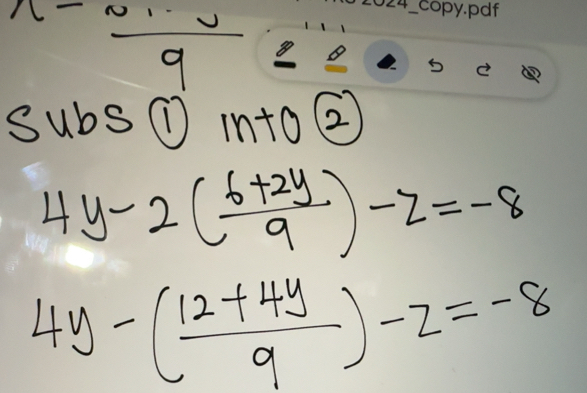 2024_copy.pdf
9
Subs ① into ②
4y - 2 ( (6+2y)/9 ) - z = -8
4y - ( (12+4y)/9 ) - z = -8